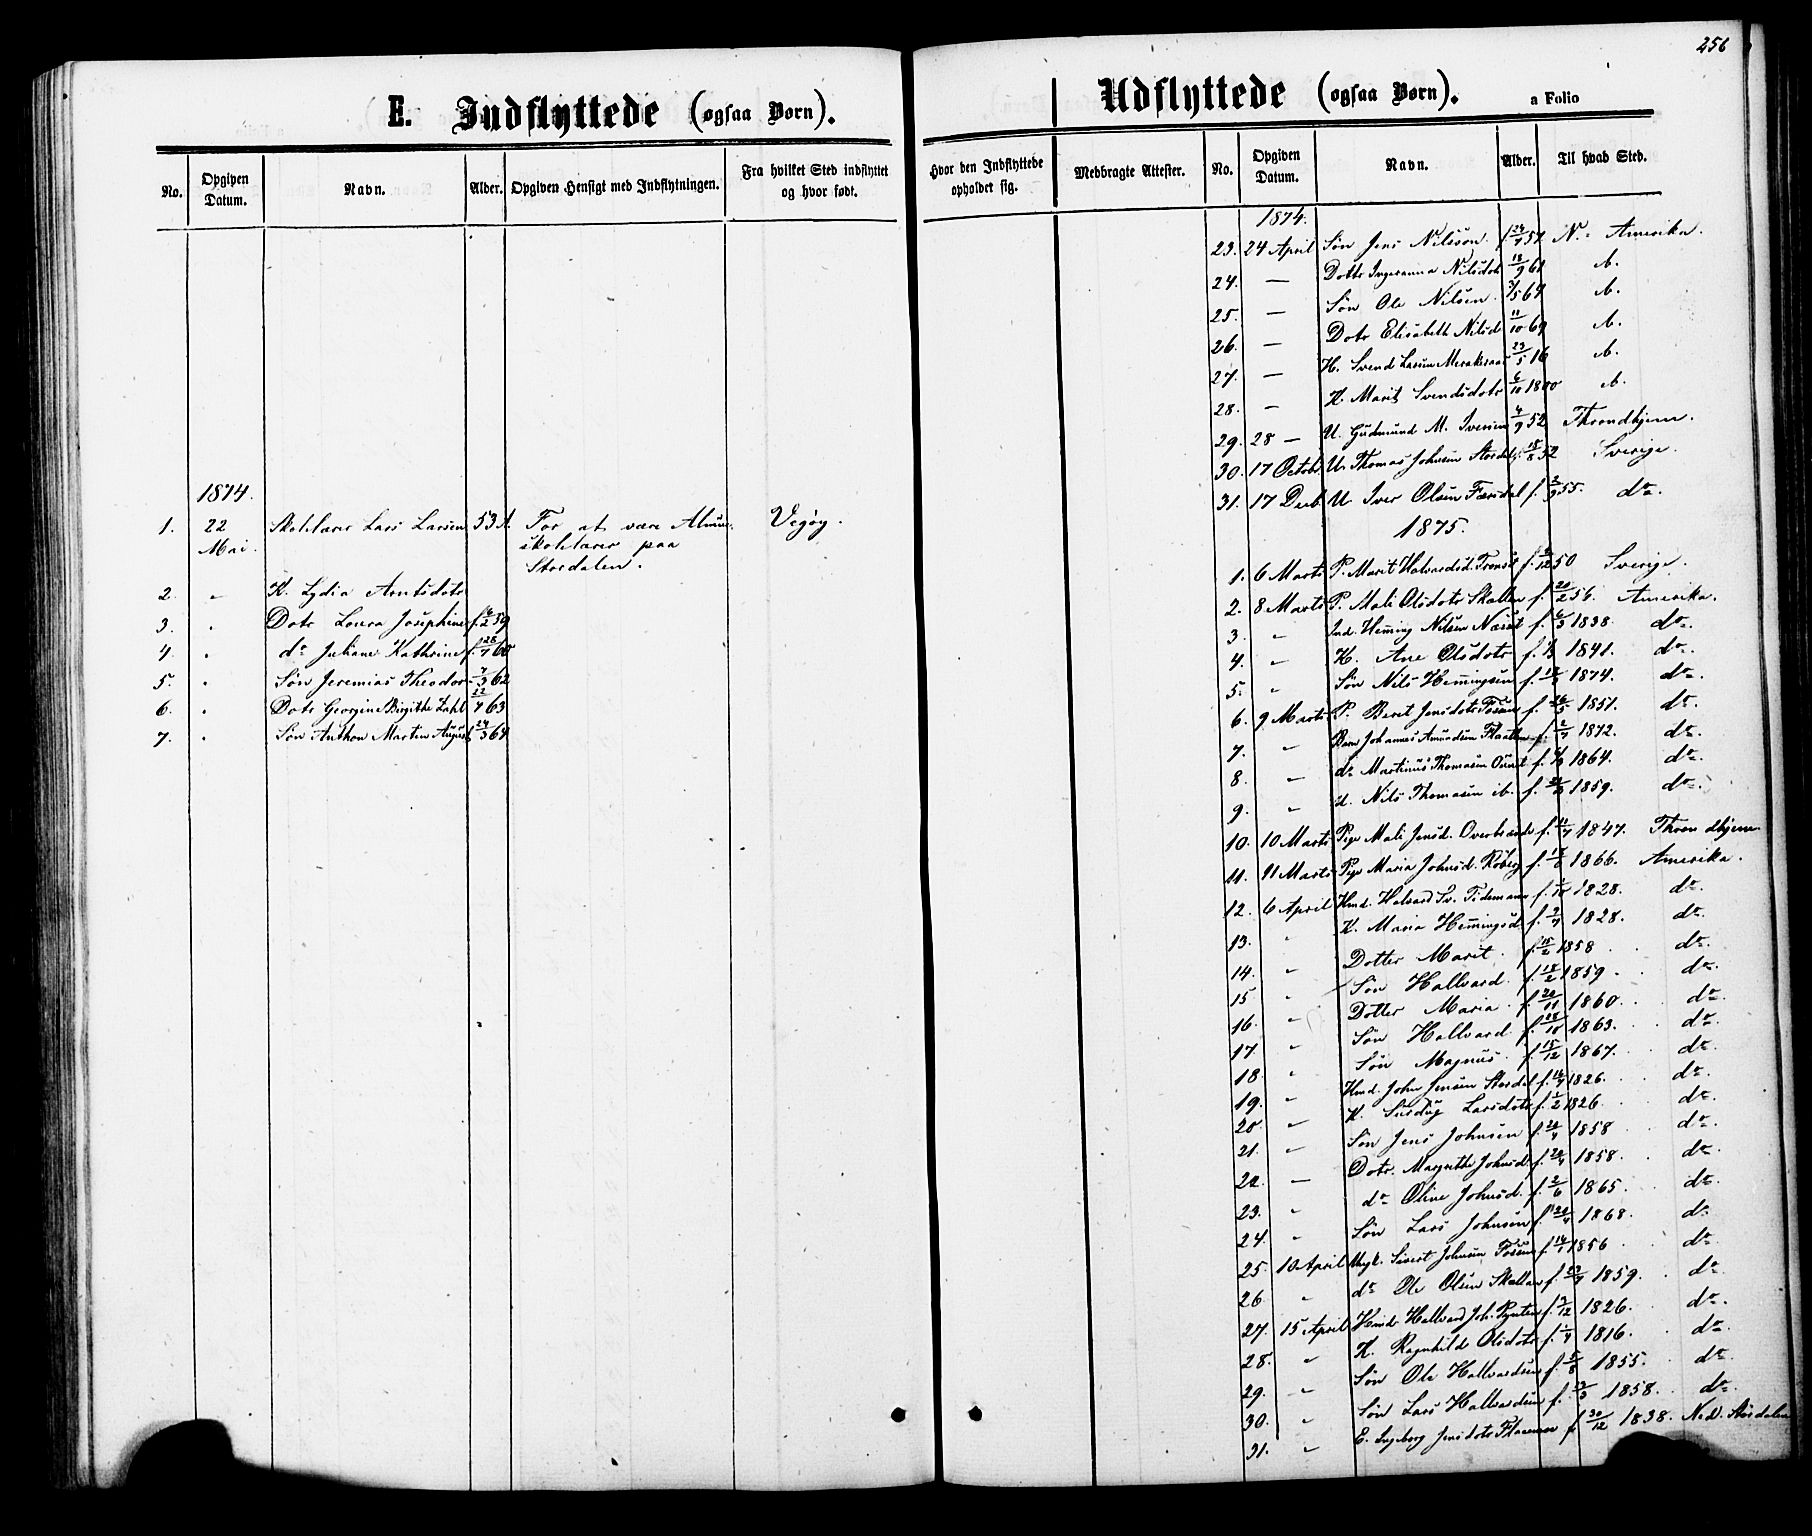 E. Indflyttede (ogsaa Børn).
No. Opgiven Datum. Navn. Alder. Opgiven Hensigt med Indflytningen. Fra hvilket Sted indflyttet og hvor født.
1874.
1. 22 Mai. Skolelærer Lars Larsen 53 A. For at være Almue- Vegøy.
skolelærer paa
Stordalen.
2. " K. Lydia Arntsdotr
3. " Dotr Loura Josephine f. 6/2 59
4. " do Juliane Kathrine f. 28/7 60
5. " Søn Jeremias Theodor 7/3 62
6. " Dotr Georgine Birgithe 22/7 63
7. " Søn Anthon Martin August 24/3 64
256
Udflyttede (ogsaa Børn). a Folio
Hvor den Indflyttede opholdet sig. Medbragte Attester. No. Opgiven Datum. Navn. Alder. Til hvad Sted.
1874.
23. 24 April Søn Jens Nilsson f. 24/7 57 N. Amerika.
24. — Dottr Ingeranna Nilsdotr 18/9 61
25. — Søn Ole Nilsen 64
26. — Dotr Elisabeth Nilsd 11/10 69
27. — H. Svend Larsen 23/5 16
28. — K. Marit Svendsdotr 6/10 1800
29. 28 — U. Gudmund M. Iversen 4/9 52 Throndhjem.
30. 17 Octobr U. Thomas Johnsen Stordal 18/8 52 Sverige.
31. 17 Decb. U Iver Olsen f. 2/9 55. do.
1875.
1. 6 Marts P. Marit Halvardsd. f. 50 Sverige.
2. 8 Marts P. Mali Olsdotr Skallen f. 20/2 56. Amerika.
3. " Ind. Heming Nilsen f. 6/3 1838. do.
4. " K. Ane Olsdotr f. 1841. do.
5. " Søn Nils Hemingsen f. 1874. do.
6. 9 Marts P. Berit Jensdotr f. 26/5 1851. do.
7. " Barn Johannes Amundsen f. 2/7 1872. do.
8. " do Martinus Thomasen f. 1864. do.
9. " U. Nils Thomasen ib. f. 1859. do.
10. 10 Marts Pige Mali Jensd. f. 11/7 1847. Throndhjem.
11. 11 Marts Pige Maria Johnsd. f. 1866. Amerika.
12. 6 April Hmd. Halvard Sv. Tidemann f. 1828. do.
13. " K. Maria Hemingsd f. 1828. do.
14. " Dotter Marit. f. 15/2 1858 do.
15 " Søn Hallvard. f. 1859. do.
16. " Dotter Maria f. 20/11 1860. do.
17. " Søn Hallvard f. 1863. do.
18. " Søn Magnus. f. 15/12 1867. do.
19. " Hmd. John Jensen Stordal f. 1826. do.
20. " K. Larsdotr f. 1/2 1826 do.
21. " Søn Jens Johnsen f. 1858 do.
22. — Dotr. Margrethe Johnsd. f. 1858. do.
23. " do Oline Johnsd. f. 2/6 1865. do.
24. " Søn Lars Johnsen f. 1868. do
25. 10 April Ungk. Sivert Johnsen f. 1856 do.
26 " do Ole Olsen Skallen f. 1859. do.
27. 15 April Hmd. Hallvard Joh. f. 1826. do.
28. " K. Ragnhild Olsdotr f. 1816. do.
29. " Søn Ole Hallvardsen f. 5/8 1855. do.
30. " Søn Lars Hallvardsen f. 1858. do.
31. " E. Ingeborg Jensdotr f 30/12 1838. Ned. Størdalen